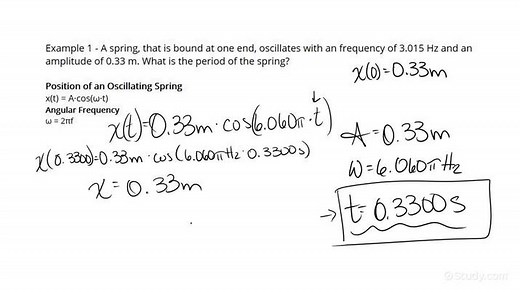 Example 1 - A spring, that is bound at one end, oscillates with an frequency of 3.015 Hz and an
amplitude of 0.33 m. What is the period of the spring?
x(0)=0.33m
Position of an Oscillating Spring
x(t) = A·cos(ω·t)
Angular Frequency
ω = 2πf
x(t)=0.33m·cos(6.060π·t)
x(0.3300)=0.33m·cos(6.060πHz·0.3300s)
x=0.33m
A=0.33m
ω=6.060πHz
→ t=0.3300s
©Study.com